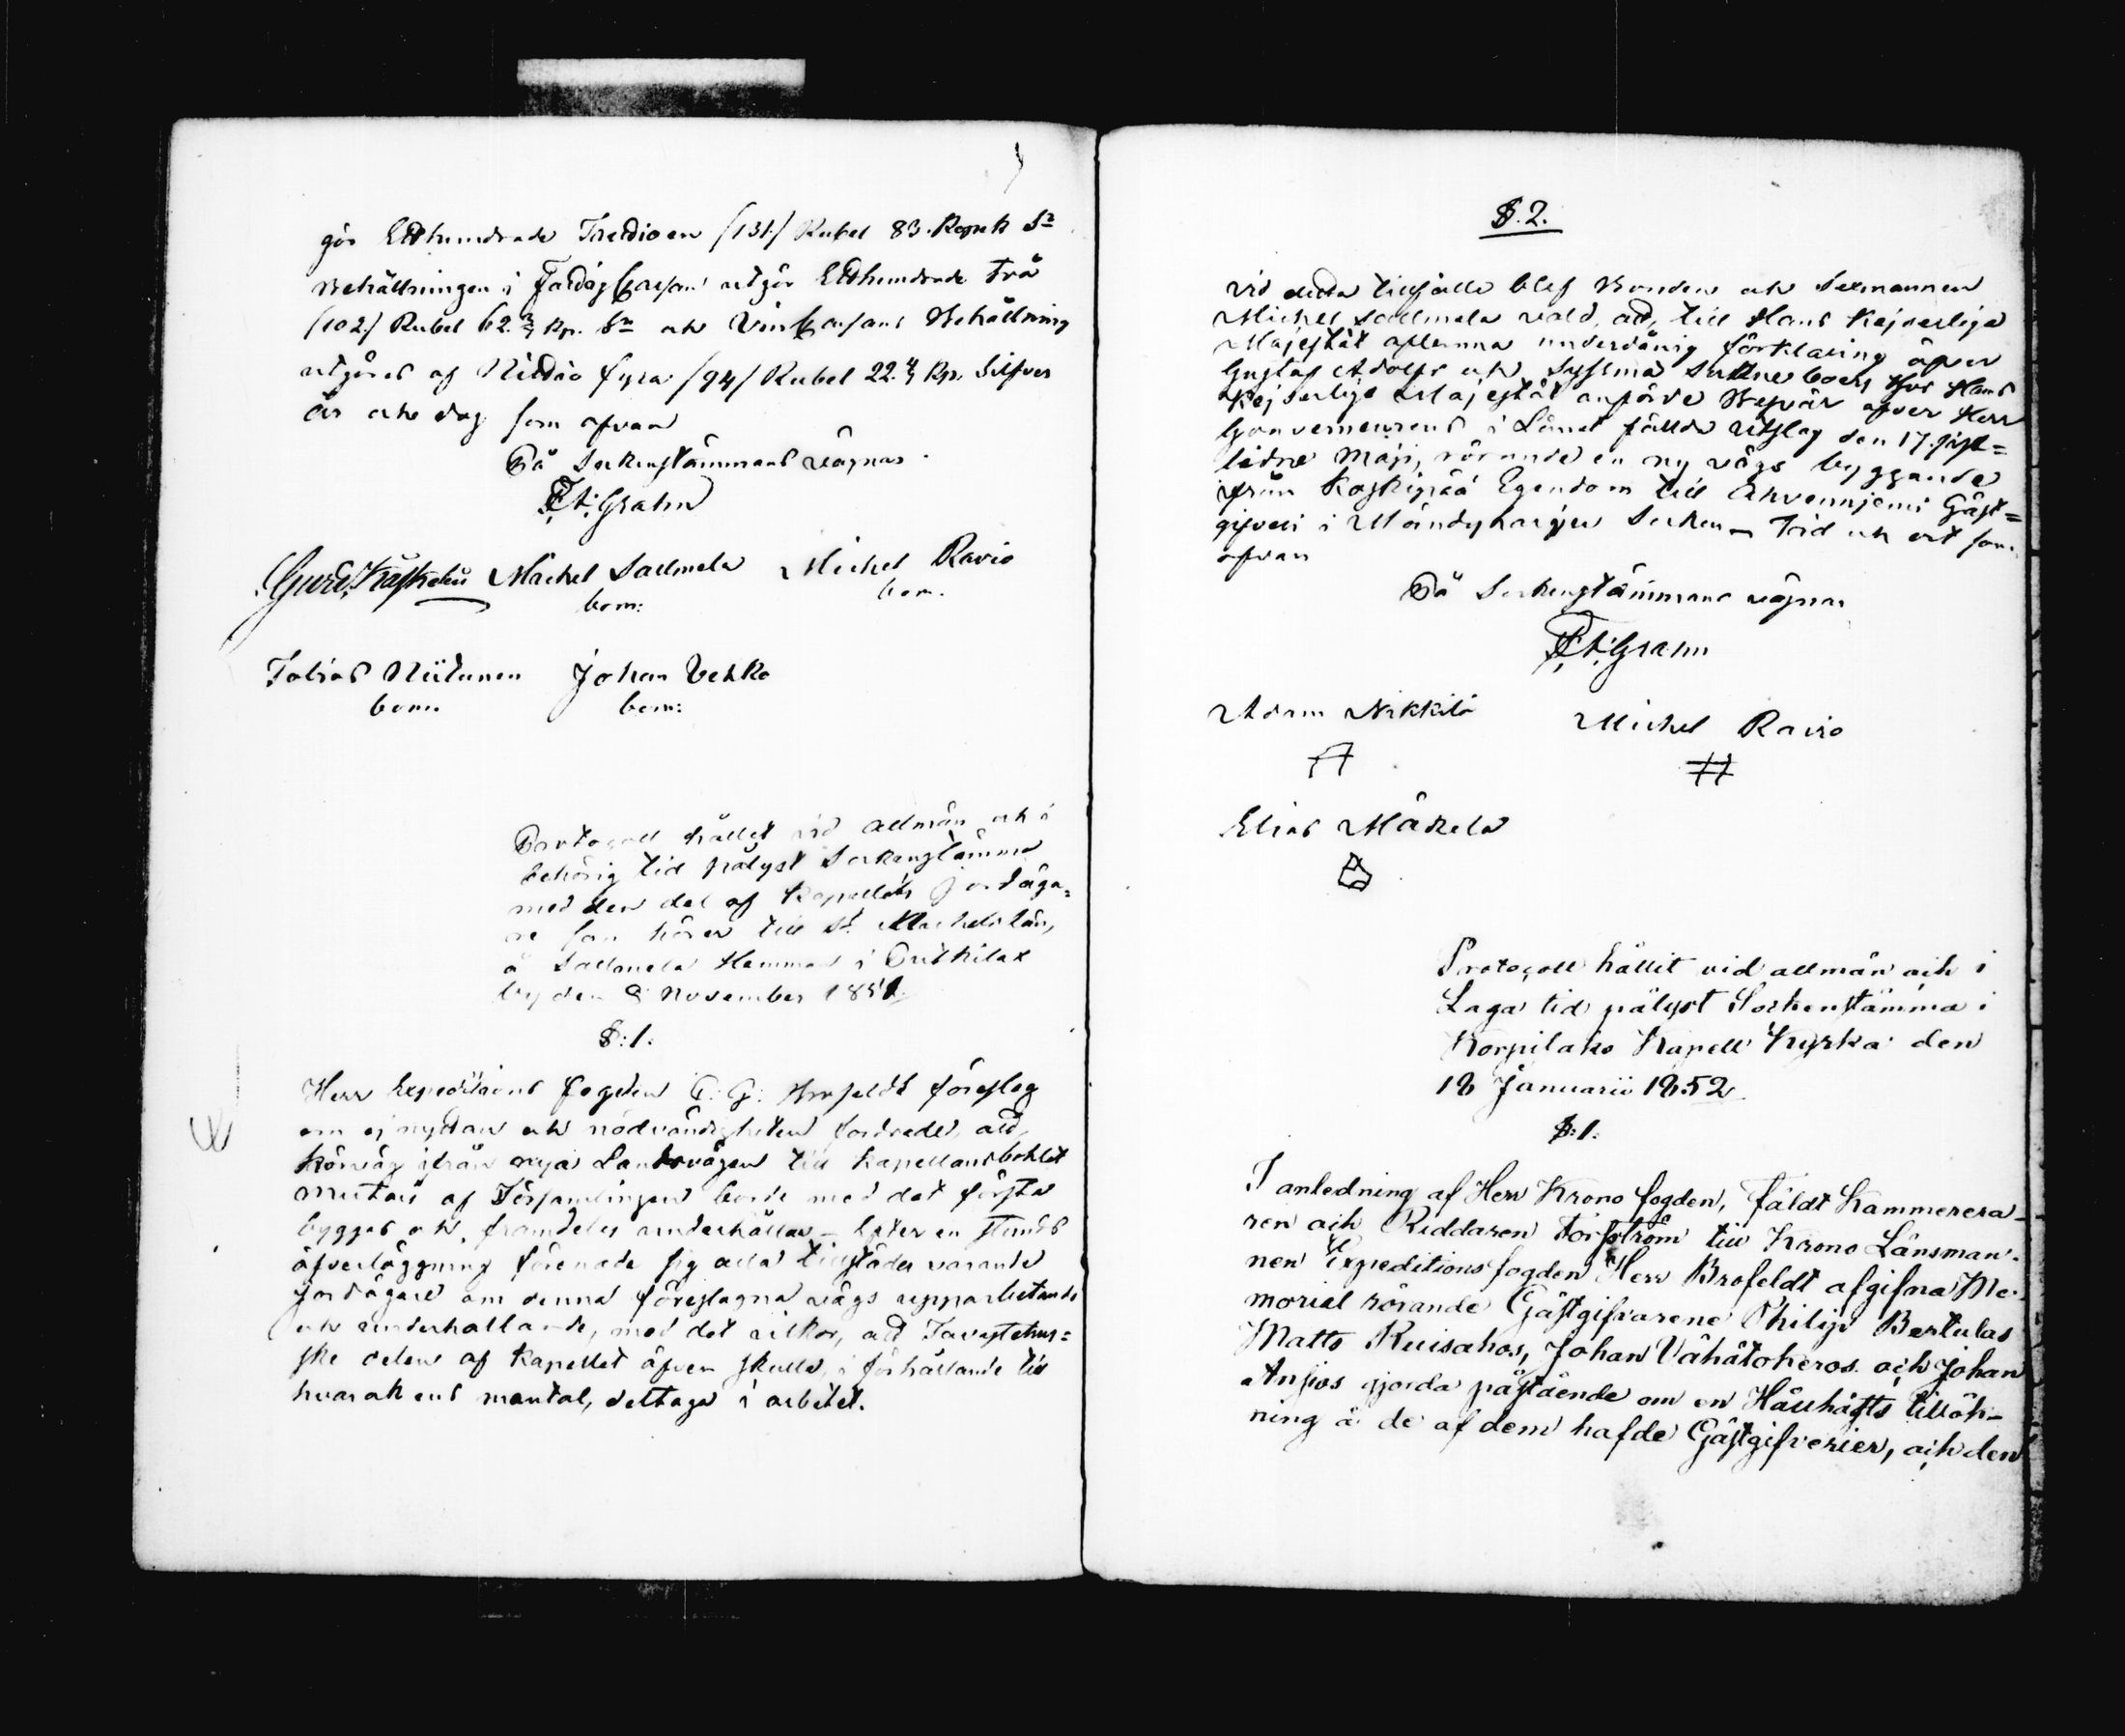 gör Etthundrade Trettioen /131/ Rubel 83. Kopek Sr
Behållningen i Fattig Cassan utgör Etthundrade två
/102/ Rubel 62.3/7 Kp. Sr och Vin Cassans Behållning
utgöres af Nittio fyra /94/ Rubel 22.4/7 Kp. Silfver
År och dag som ofvan
På Sockenstämmans vägnar
Grahn
Michel Sallmela Michel Ravio
bom: bom.
Tobias Niitunen Johan Vehko
bom: bom:
Protocoll hållet vid allmän och i
behörig tid pålyst Sockenstämma
med den del af Kapellets Jordäga=
re som hörer till St. Michels län,
å Sallmela Hemman i Putkilax
by den 9 November 1851.
§:1.
Herr Expeditions fogden C: G: Brofeldt föreslog
om ej nyttan och nödvändigheten fordrade, att
körväg ifrån nya Landsvägen till Kapellansbohlet
af Församlingen borde med det första
byggas och framdeles underhållas – Efter en stunds
öfverläggning förenade sig alla tillstädes varande
Jordägare om denna föreslagna vägs upparbetande
och underhållande, med det vilkor, att Tavastehus=
ske delen af Kapellet äfven skulle, i förhållande till
hvarakens mantal, dettaga i arbetet.
§.2.
Vid detta tillfälle blef Bonden och Sexmannen
Michel Sallmela vald, att, till Hans Kejserliga
Majestät aflemna underdånig förklaring öfver
Gustaf Adolfs och Sysmä Sockneboers hos Hans
Kejserliga Majestät anförde Besvär öfver Herr
Gouverneurens i Länet fällda Utslag den 17. sist=
lidne Maji, rörande en ny vägs byggande
ifrån Koskipää Egendom till Ahvenniemi Gäst=
gifveri i Mändyharju Socken – Tid och ort som
ofvan
På Sockenstämmans vägnar
Grahn
Adam Nikkilä Michel Ravio
Elias Mäkelä
Protocoll hållit vid allmän och i
Laga tid pålyst Sockenstämma i
Korpilaks Kapell Kyrka den
18 Januarii 1852
§:1:
I anledning af Herr Krono fogden, Fäldt Kammerera-
ren och Riddaren Forsström till Krono Länsman-
nen Expeditions fogden Herr Brofeldt afgifna Me-
morial rörande Gästgifvarene Philip Bertulas
Matts Ruisahos, Johan Vähätokeros och Johan
Anjios gjorda påstående om en Hållhästs tillök-
ning å de af dem hafde Gästgifverier, och den